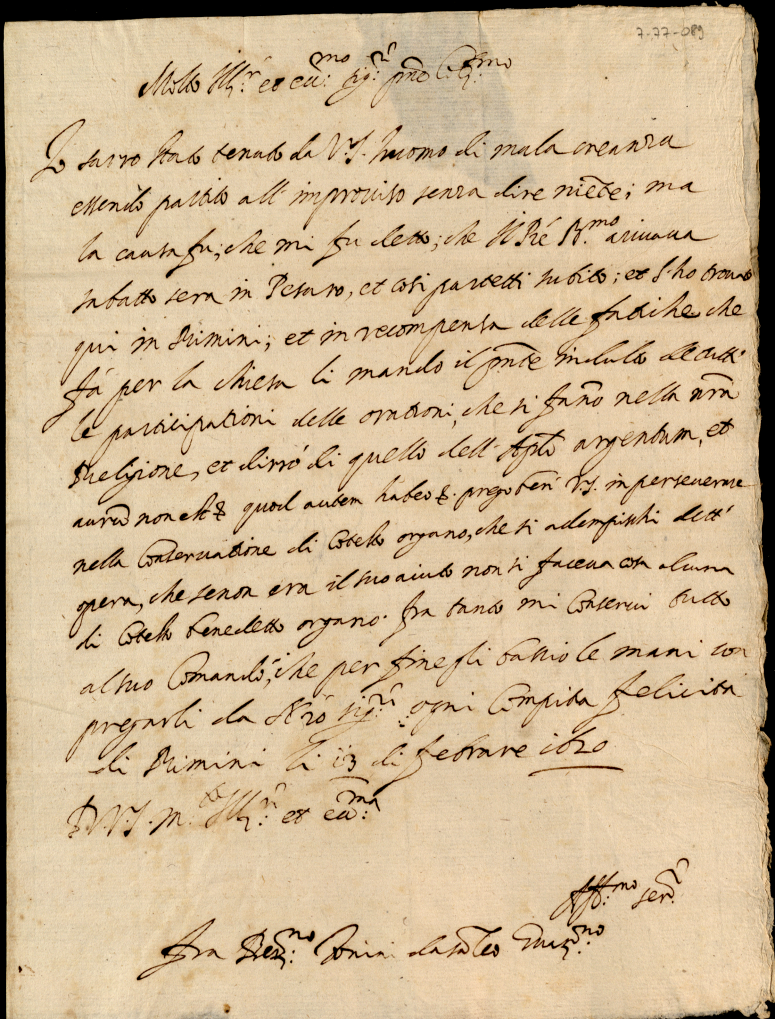 7-77-089
Molto Ill.r et ecc.mo sig.r p̃ne
Io sarro stato tenuto da V.S. huomo di mala creanza
essendo partito all' improviso senza dire niẽte; ma
la causa fu, che mi fu detto, che il Rmo arivava
sabatto sera in Pesaro, et cosi partetti subito; et l'ho trovato
qui in Rimini; et in recompensa delle fatiche che
fa per la chiesa li mando il p̃nte indulto de tutte
le participationi delle orationi, che si fano nella nr̃a
Religione, et dirrò di quello dell' Aplo argentum, et
aurũ non est quod autem habeo prego V.S. in perseverare
nella conservatione di cotesto organo, che si adempischi dett'
opera, che se non era il suo aiuto non si faceva cosa alcuna
di cotesto benedetto organo. fra tanto mi conservi tutto
al suo comando, che per fine gli bascio le mani con
pregarli da Nr̃o sig.r ogni compita felicità
di Rimini li 13 di febrare 1620
D. V. S. m.to Ill.r et ecc.ma
Aff.mo ser.r
fra